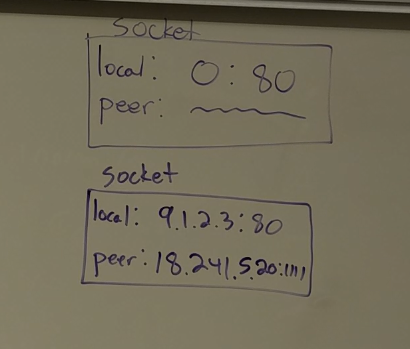 Socket
local: 0:80
peer:
Socket
local: 9.1.2.3:80
peer: 18.241.5.20:1111